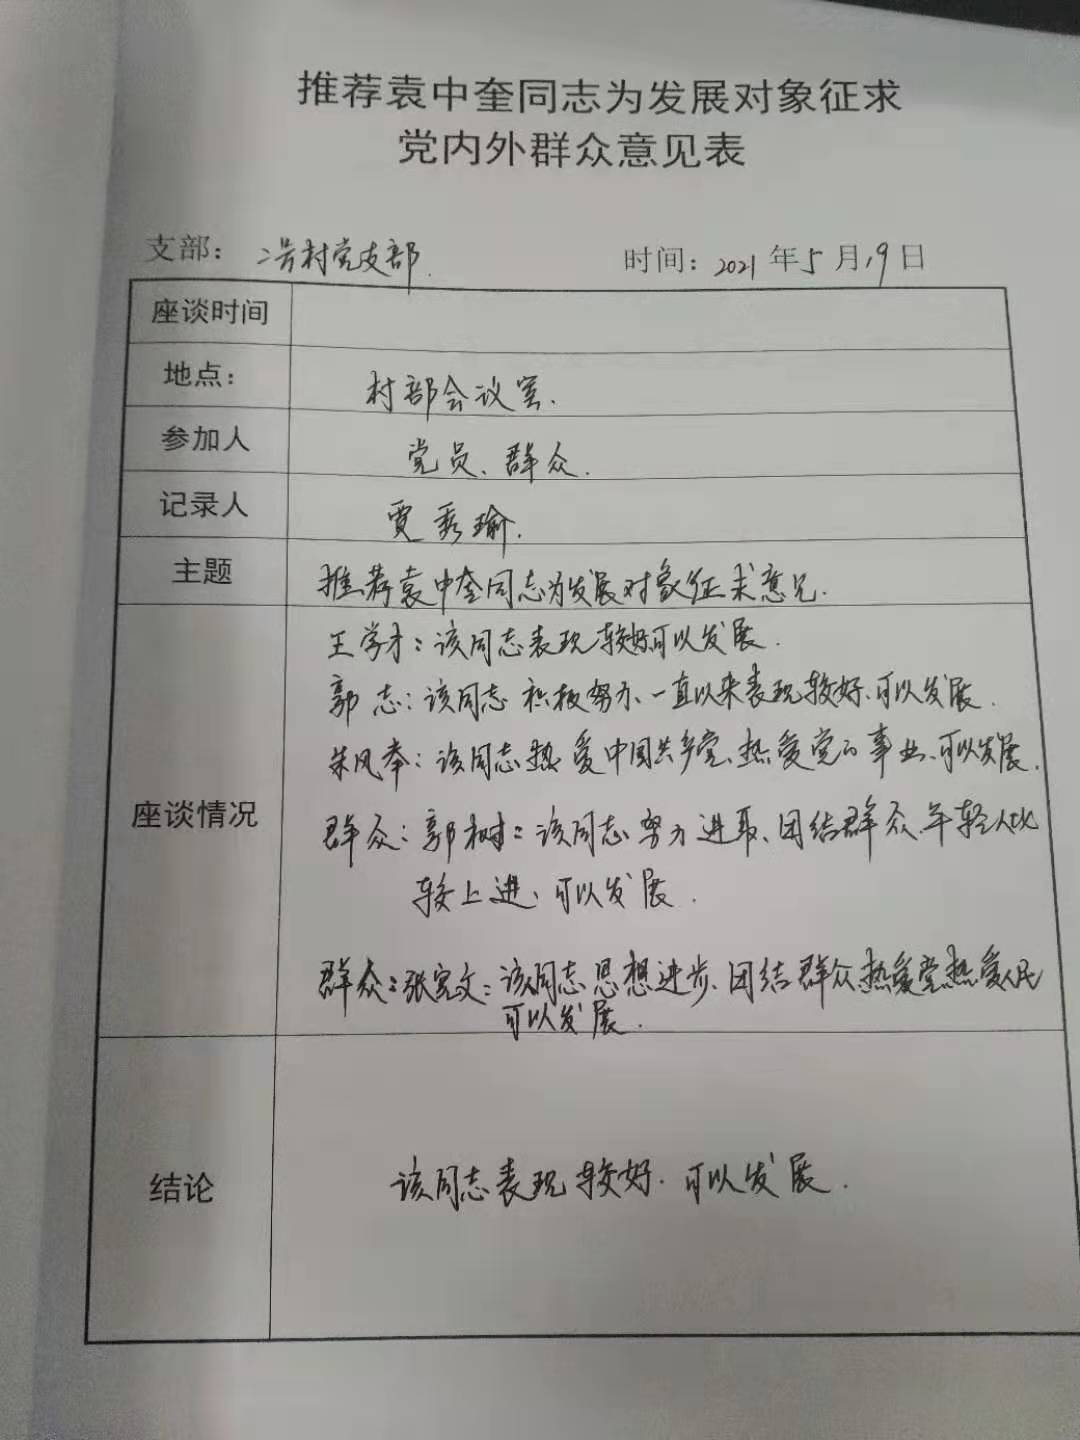 推荐袁中奎同志为发展对象征求
党内外群众意见表
支部：二号村党支部. 时间：2021年5月19日
座谈时间
地点： 村部会议室.
参加人 党员、群众.
记录人 贾秀瑜.
主题 推荐袁中奎同志为发展对象征求意见.
座谈情况
王学才：该同志表现较好可以发展.
郭志：该同志积极努力、一直以来表现较好、可以发展.
朱凤奉：该同志热爱中国共产党、热爱党的事业、可以发展.
群众：郭树：该同志努力进取、团结群众、年轻人比
较上进、可以发展.
群众：张宪文：该同志思想进步、团结群众热爱党热爱人民
可以发展.
结论 该同志表现较好.可以发展.